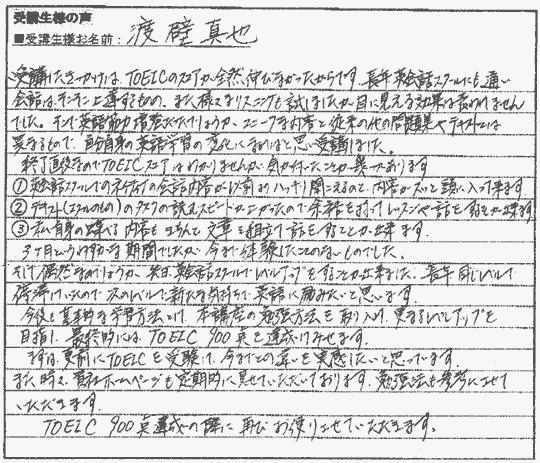 受講生様の声
■受講生様お名前：渡壁真也
受講したきっかけは、TOEICのスコアが全然伸びなかったからです。長年英会話スクールにも通い
会話はそこそこ上達するものの、また様々なリスニングも試しましたが目に見える効果は表われません
でした。そんな英語脳力環境だったでしょうか、ユニークな内容で従来の他の問題集やテキストとは
異なるもので、自分自身の英語学習の変化になればと思い受講しました。
終了直後なのでTOEICスコアはわかりませんが、気が付いたことが異っております
①英会話スクールでのネイティブの会話内容が以前よりハッキリ聞こえるので、内容がスッと頭に入って来ます
②テキスト(スクールのもの)のタスクの読むスピードが上がったので余裕を持ってレッスンや話をすることが出来ます
③私自身の喋べる内容もきちんと文章を組立て話をすることが出来ます
3ヶ月というわずかな期間でしたが、今まで体験したことのないものでした。
そして偶然なのでしょうか、先日、英会話スクールでレベルアップをすることが出来ました、長年同じレベルで
停滞していたので、次のレベルで新たな気持ちで英語に励みたいと思います。
今後も基本的な学習方法として、本講座の勉強方法を取り入れ、更なるレベルアップを
目指し、最終的には、TOEIC 900点を達成してみせます。
まずは、実前にTOEICを受験して、今までとの違いを実感したいと思っています。
また時々、貴社ホームページも定期的に見せていただいております。勉強法も参考にさせて
いただきます。
TOEIC 900点達成の際に再びお便りさせていただきます。